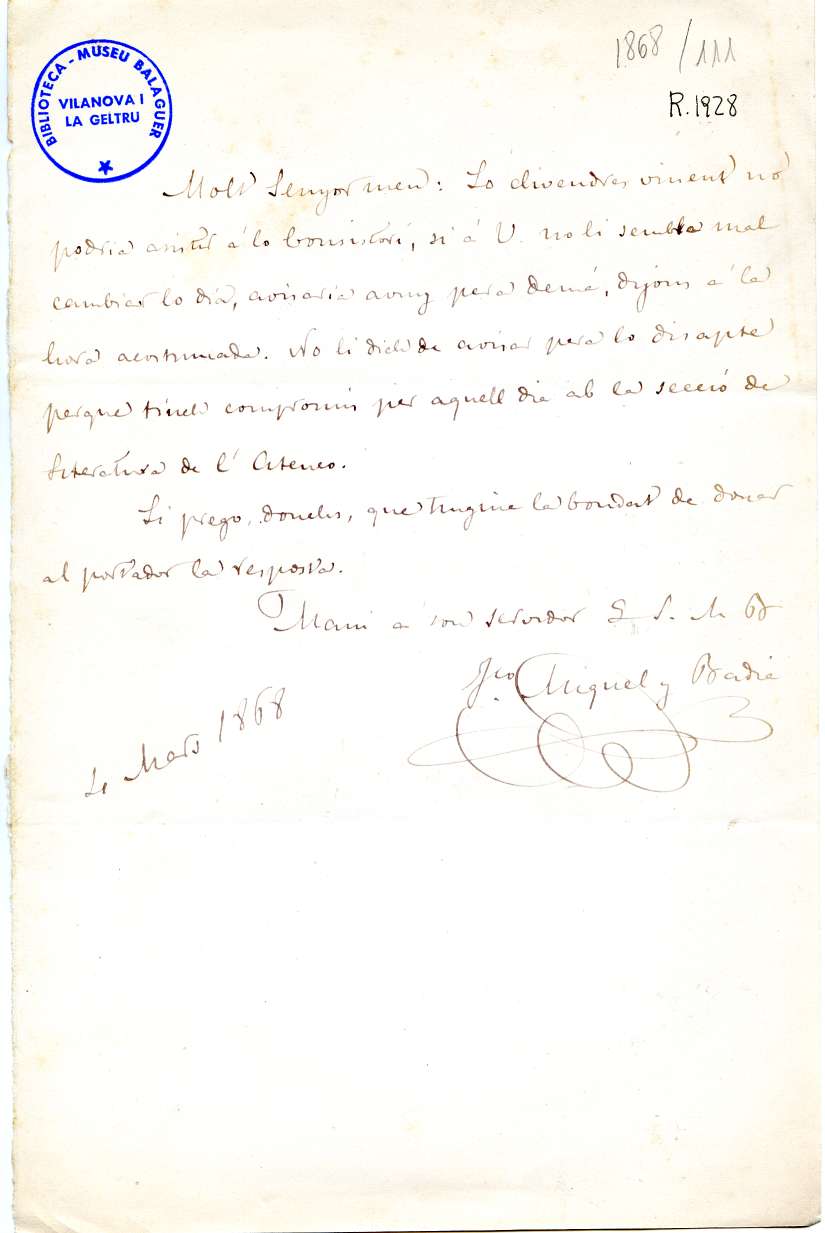 1868/111
R.1928
BIBLIOTECA - MUSEU BALAGUER
VILANOVA I
LA GELTRU
Molt Senyor meu: Lo divendres vinent no
podria assistir á lo Consistori, si á V. no li sembla mal
cambiar lo dia, avisaria avuy pera demá, dijous á la
hora acostumada. No li dich de avisar pera lo disapte
perque tinch compromis per aquell dia ab la secció de
Literatura de l' Ateneo.
Li prego, donchs, que tingue la bondat de donar
al portador la resposta.
Mani á son servidor Q. S. M. B
Fco. Miquel y Badia
4 Mars 1868